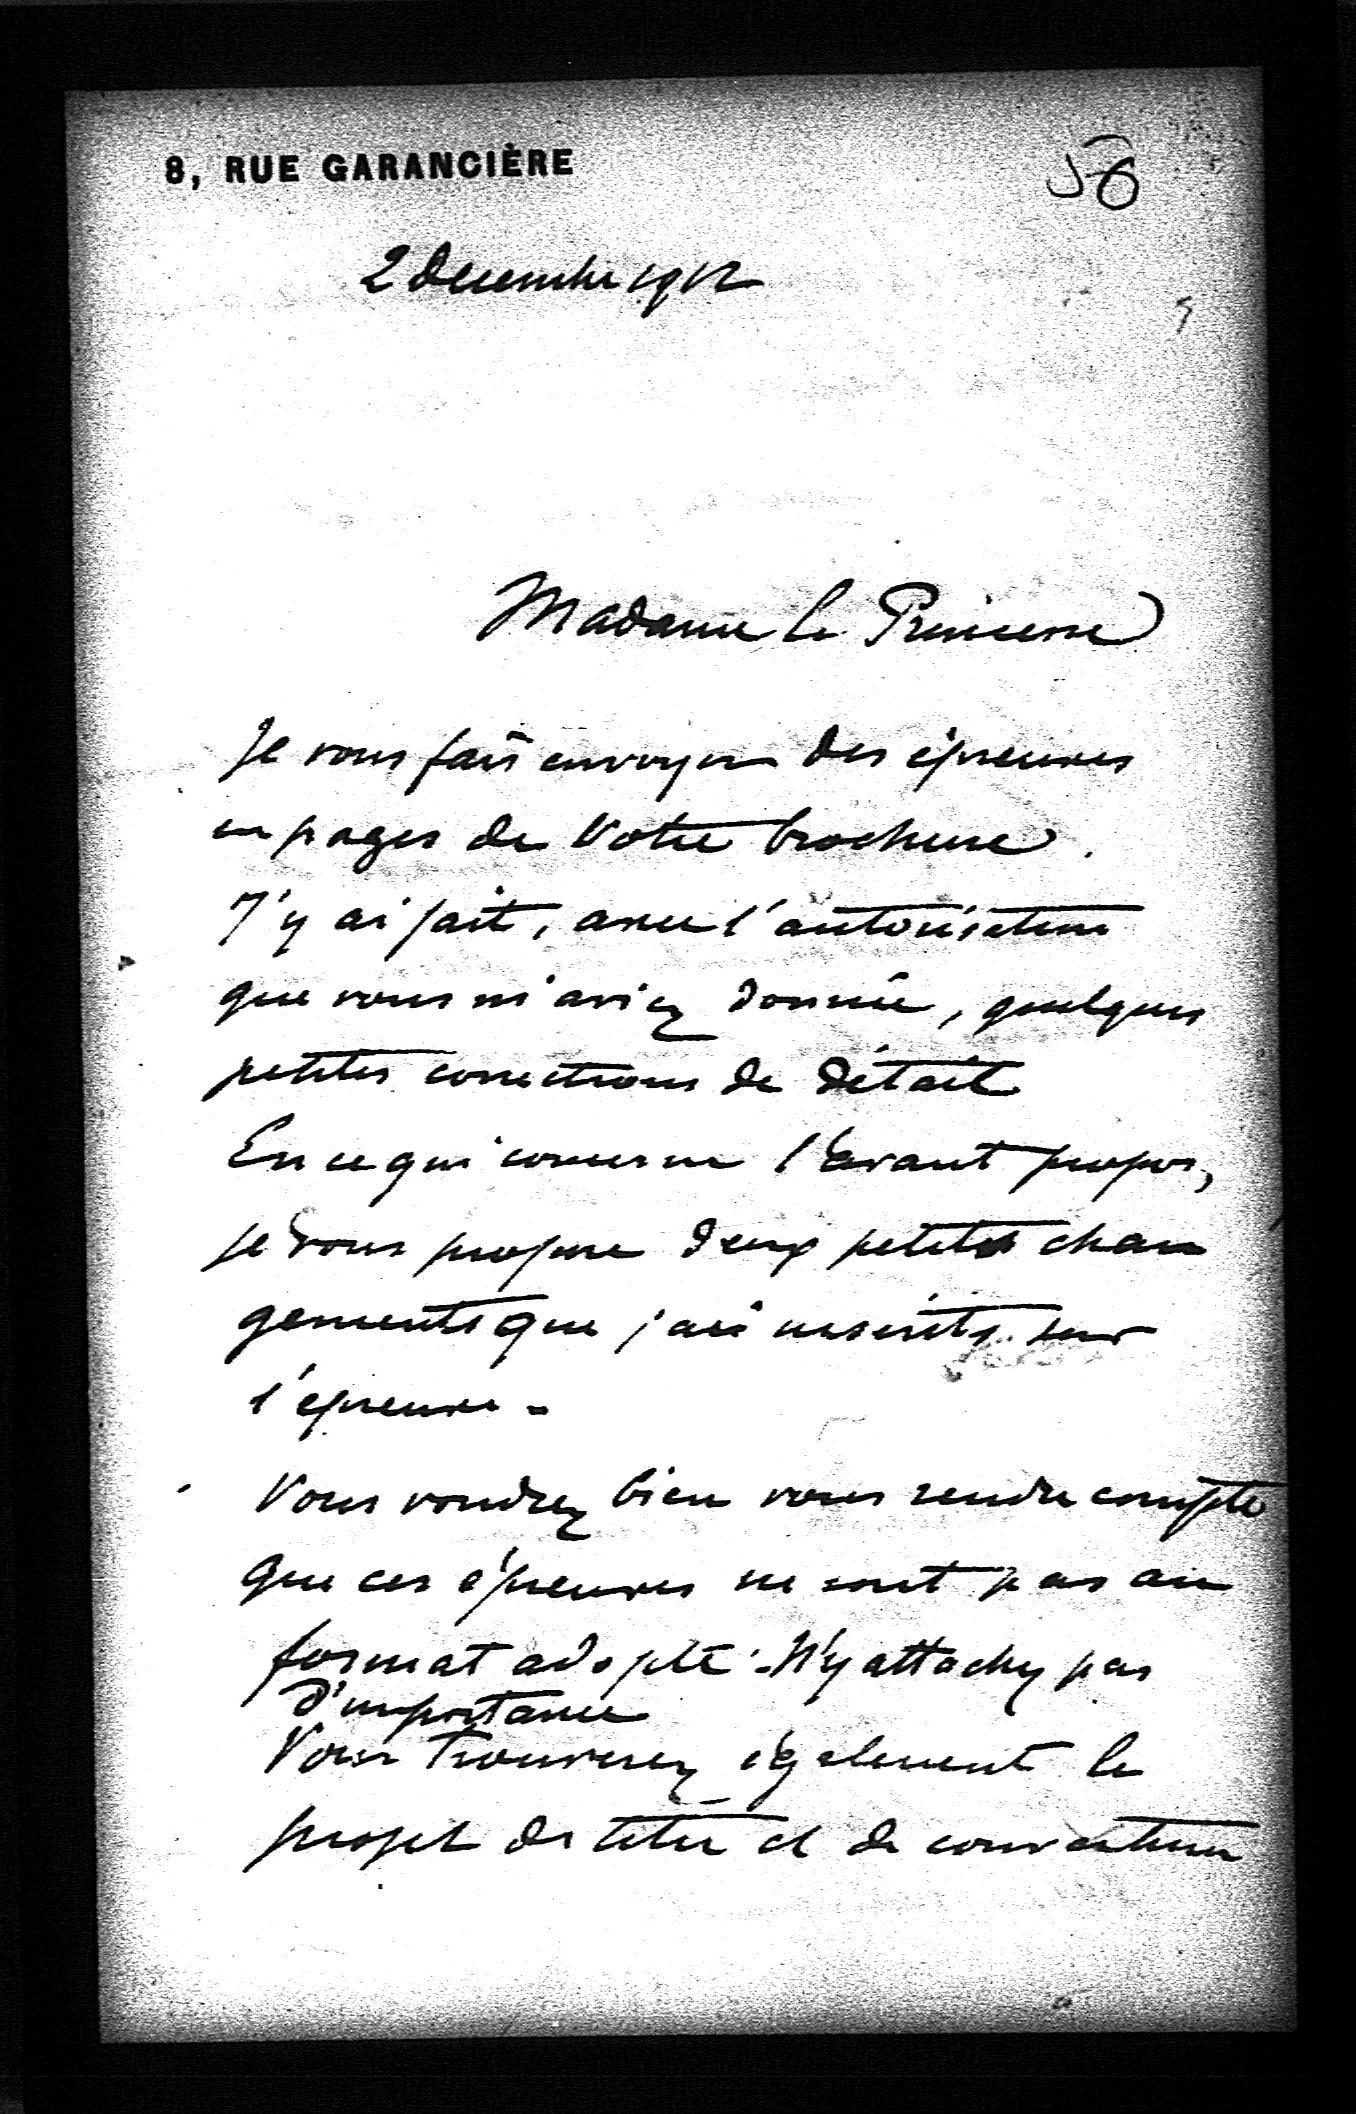 8, RUE GARANCIÈRE
56
2 décembre 1912
Madame la Princesse
Je vous fais envoyer des épreuves
en pages de Votre brochure.
J'y ai fait, avec l'autorisation
que vous m'aviez donnée, quelques
petites corrections de détail
En ce qui concerne l'avant propos,
je vous propose deux petits chan
gements que j'ai inscrits sur
l'épreuve.
Vous voudrez bien vous rendre compte
que ces épreuves ne sont pas au
format adopté. N'y attachez pas
d'importance
Vous trouverez également le
projet de titre et de couverture